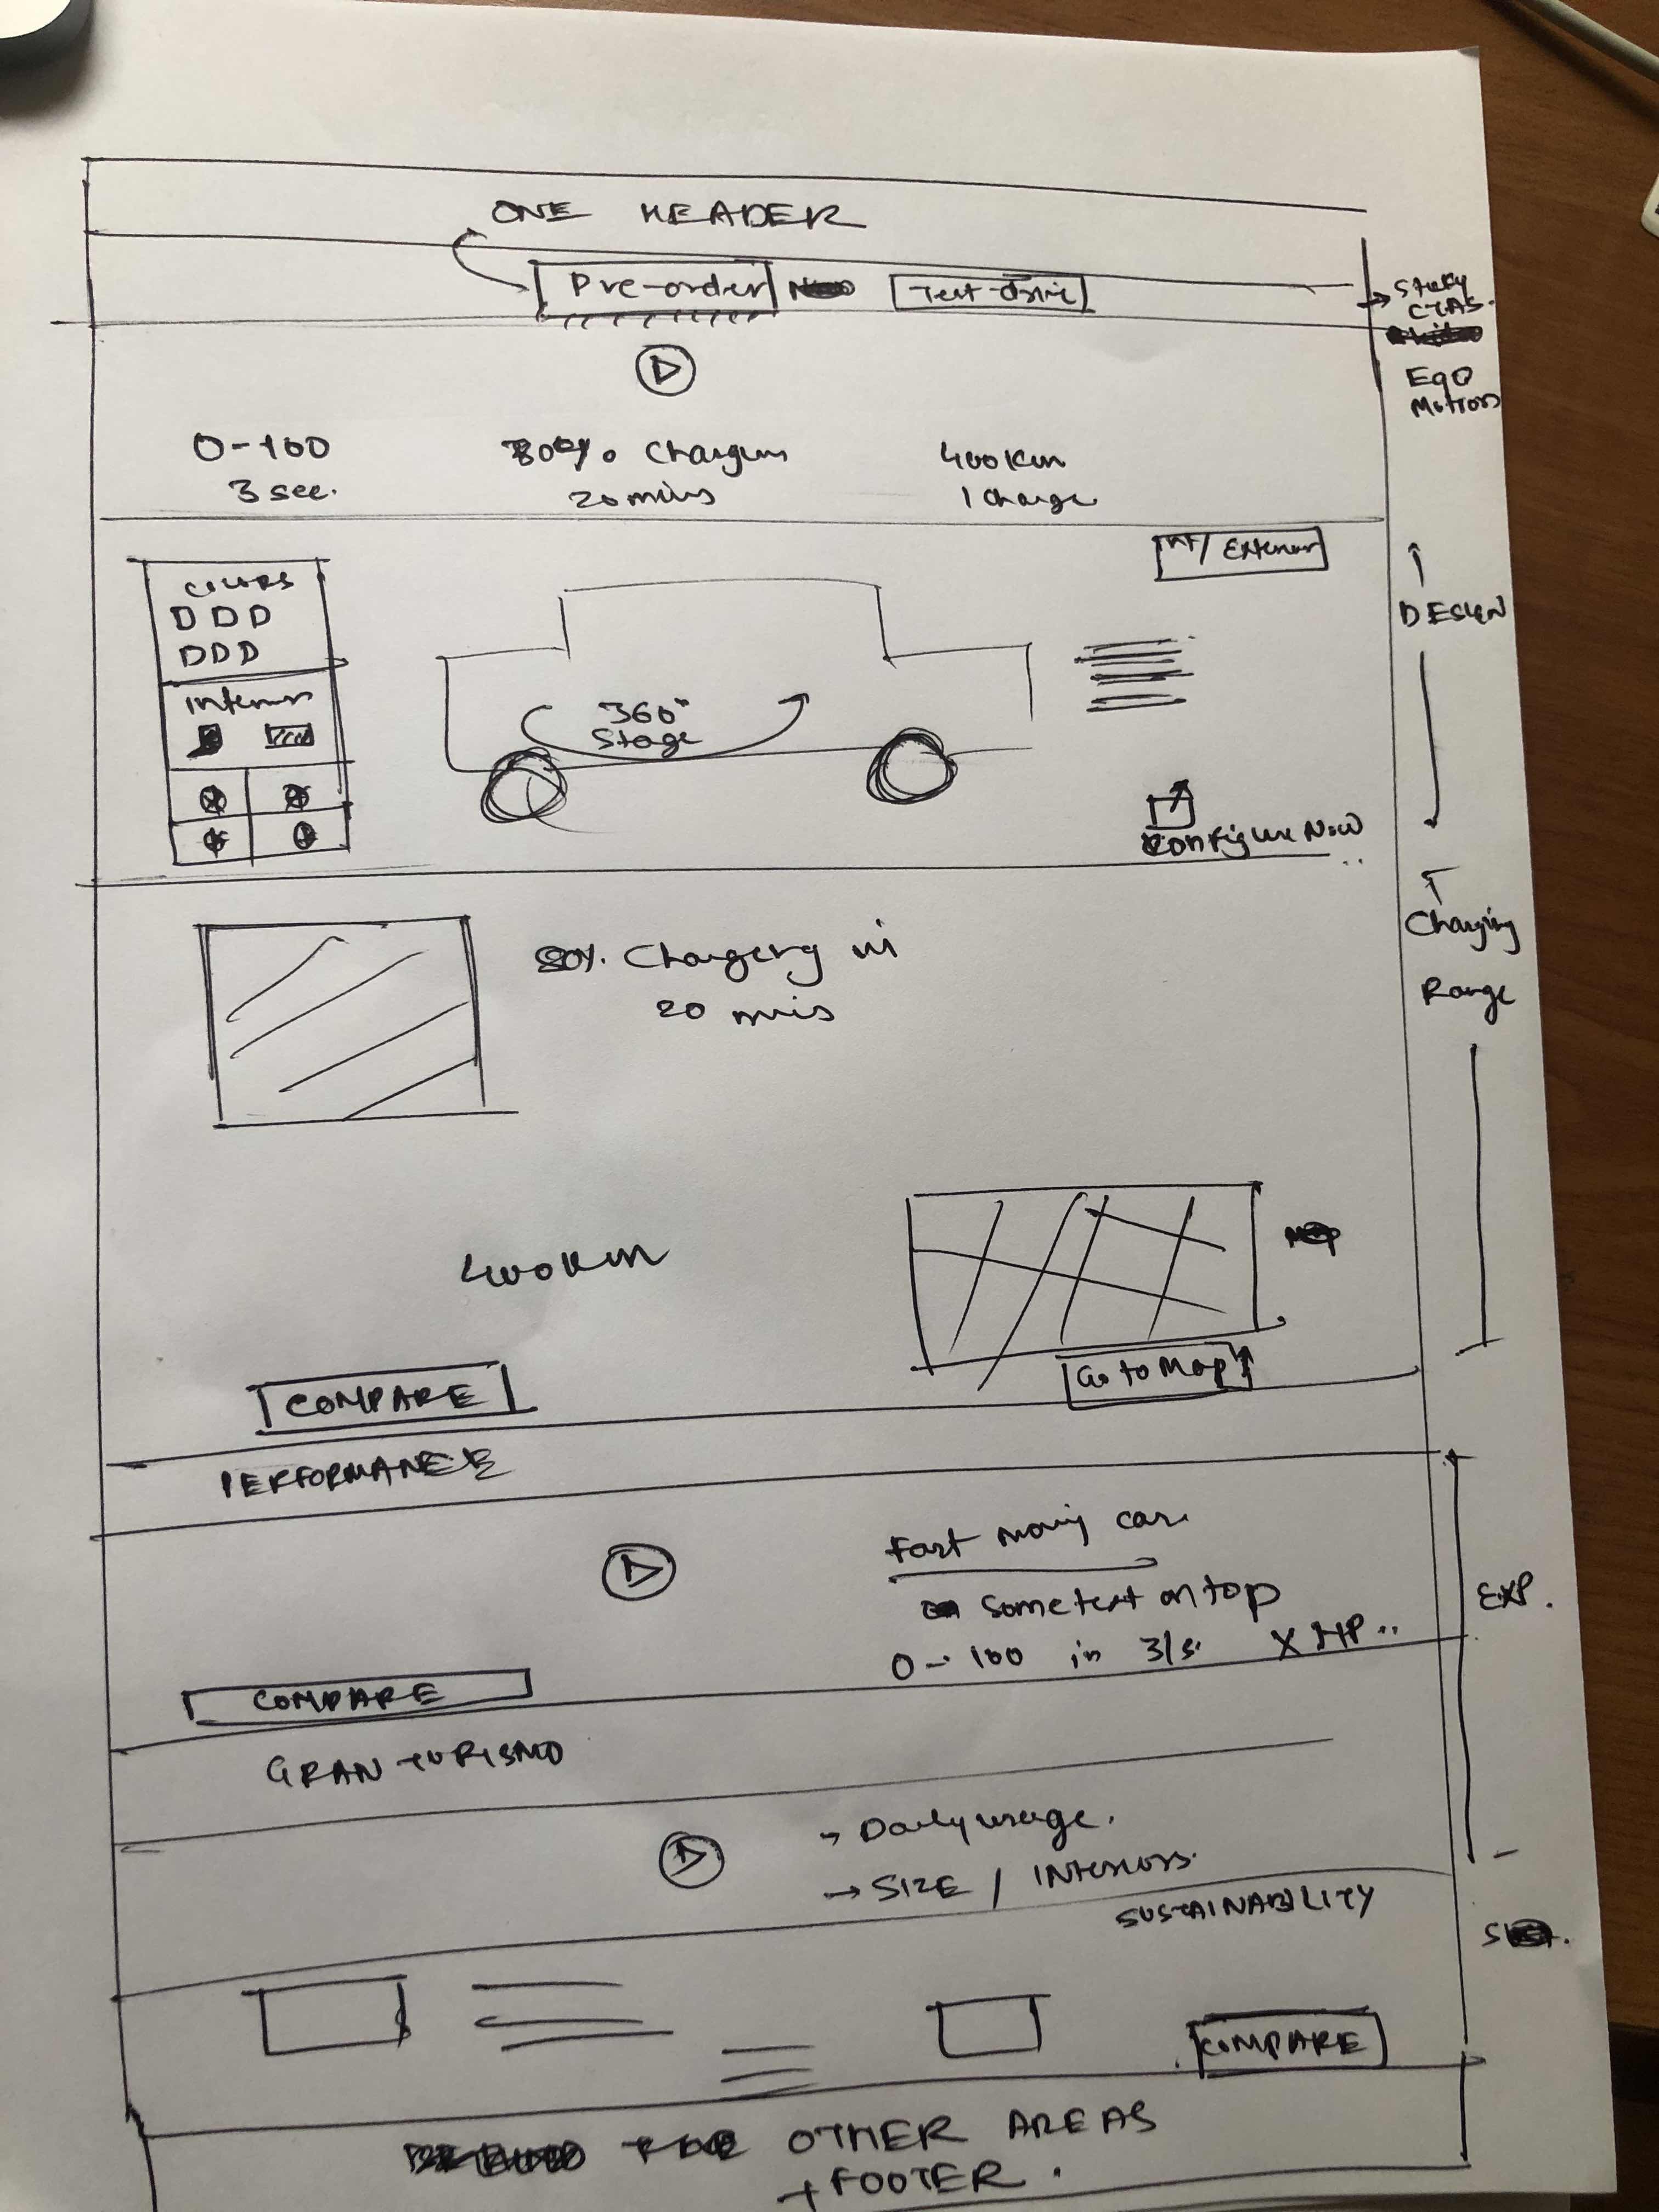 ONE HEADER
Pre-order
Test-drive
CTAS.
EgO
Motion
0-100
3 sec.
80% Charging
20 mins
400Km
1 charge
Int/ Exterior
DESIGN
COLORS
D D D
D D D
Interior
360°
Stage
Configure Now
Charging
Range
80%. Charging in
20 mins
400Km
Go to Map
COMPARE
PERFORMANCE
Fast moving car
some text on top
0-100 in 3/s. X HP..
EXP.
COMPARE
GRAN TURISMO
→ Daily usage.
→ SIZE / Interiors.
SUSTAINABILITY
COMPARE
OTHER AREAS
+ FOOTER.